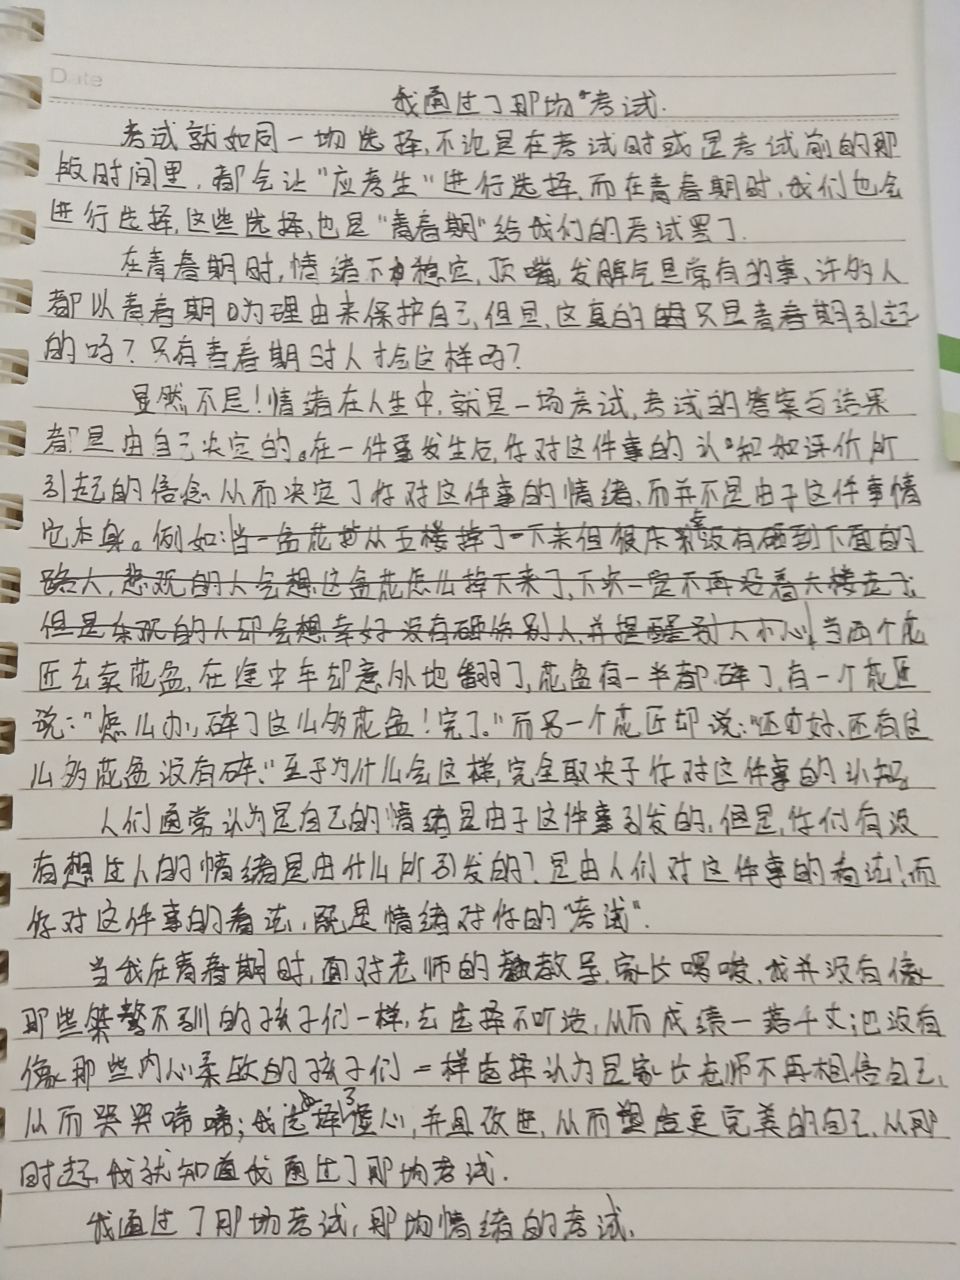 Date
我通过了那场"考试.
考试就如同一场选择,不论是在考试时或是考试前的那
段时间里,都会让"应考生"进行选择,而在青春期时,我们也会
进行选择,这些选择,也是"青春期"给我们的考试罢了.
在青春期时,情绪不稳定,顶嘴,发脾气是常有的事、许多人
都以青春期为理由来保护自己,但是,这真的只是青春期引起
的吗?只有青春期时人才会这样吗?
显然不是!情绪在人生中,就是一场考试,考试的答案与结果
都是由自己决定的。在一件事发生后,你对这件事的认知和评价所
引起的信念从而决定了你对这件事的情绪,而并不是由于这件事情
它本身。例如:当一盆花从五楼掉了下来但很庆幸没有砸到下面的
路人,悲观的人会想这盆花怎么掉下来了,下次一定不再沿着大楼走了;
但是乐观的人却会想幸好没有砸伤别人,并提醒别人小心!当两个花
匠去卖花盆,在途中车却意外地翻了,花盆有一半都碎了,有一个花匠
说:"怎么办,碎了这么多花盆!完了."而另一个花匠却说:"还好,还有这
么多花盆没有碎."至于为什么会这样,完全取决于你对这件事的认知
人们通常认为是自己的情绪是由于这件事引发的,但是,你们有没
有想过人的情绪是由什么所引发的?是由人们对这件事的看法!而
你对这件事的看法,既是情绪对你的"考试".
当我在青春期时,面对老师的教导,家长啰唆,我并没有像
那些桀骜不驯的孩子们一样,去选择不听话,从而成绩一落千丈;也没有
像那些内心柔软的孩子们一样选择认为是家长老师不再相信自己,
从而哭哭啼啼;我选择了虚心,并且改进,从而塑造更完美的自己,从那
时起,我就知道我通过了那场考试.
我通过了那场考试,那场情绪的考试.